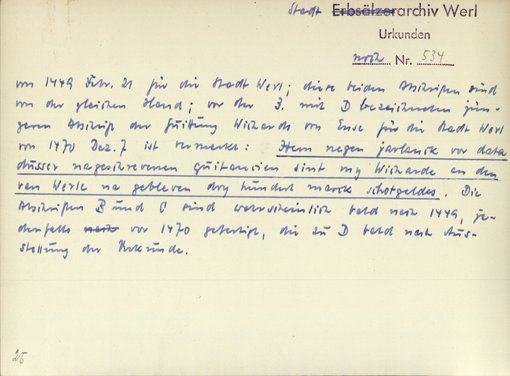 Stadt Erbsälzerarchiv Werl
Urkunden
noch Nr. 534
von 1449 Febr. 21 für die Stadt Werl; diese beiden Abschriften sind
von der gleichen Hand; vor der 3. mit D bezeichneten jün-
geren Abschrift der Quittung Wichards von Ense für die Stadt Werl
von 1470 Dez. 7 ist vermerkt: Item negen jarlanck vor data
dusser nageschrevenen quitancien sint my Wicharde an den
van Werle na gebleven dry hundert marck schotgeldes. Die
Abschriften B und C sind wahrscheinlich bald nach 1449, je-
denfalls nach vor 1470 gefertigt, die zu D bald nach Aus-
stellung der Urkunde.
25